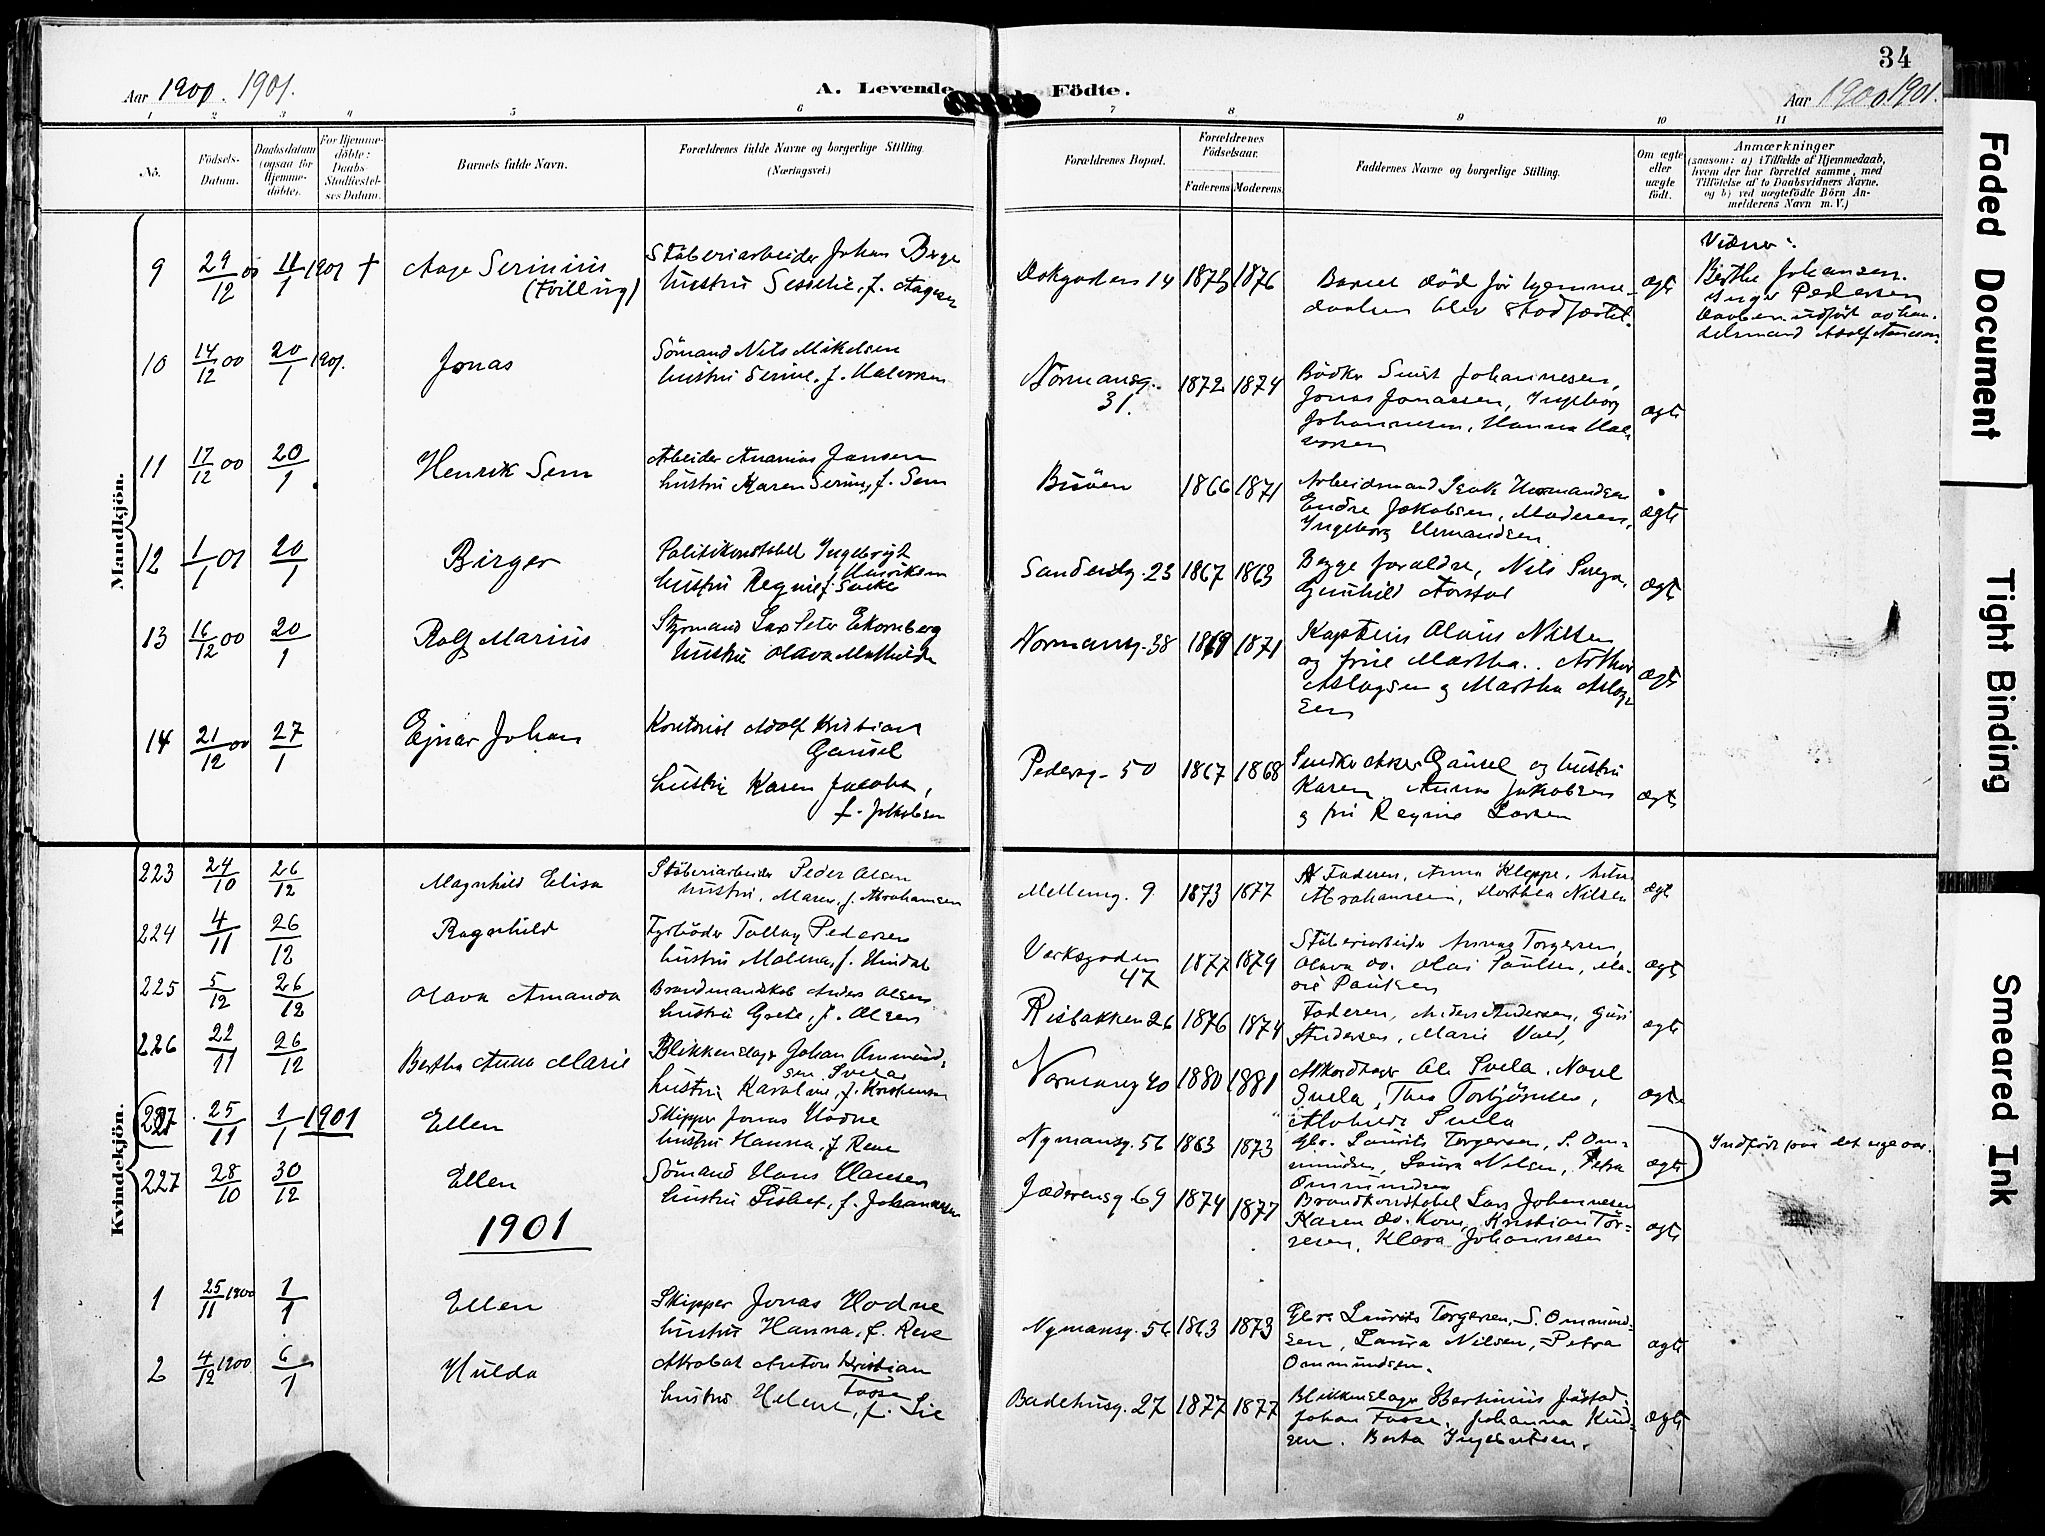 34
Aar 1900. 1901.
A. Levende Födte.
Aar 1900 1901.
1 2 3 4 5 6 7 8 9 10 11
No.
Födsels-Datum.
Daabsdatum (ogsaa for Hjemme-döbte).
For Hjemme-döbte: Daabs-Stadfæstel-ses Datum.
Barnets fulde Navn.
Forældrenes fulde Navne og borgerlige Stilling
(Næringsvei.)
Forældrenes Bopæl.
Forældrenes Födselsaar.
Faderens Moderens
Faddernes Navne og borgerlige Stilling.
Om ægte eller uægte födt.
Anmærkninger
(saasom: a) i Tilfælde af Hjemmedaab,
hvem der har forrettet samme, med
Tilföielse af to Daabsvidners Navne.
og b) ved uægtefödte Börn An-
melderens Navn m. V.)
Mandkjön.
9 29/12 00 11/1 1901 † Aage Serinius (tvilling) Stöberiarbeider Johan Berge hustru Sesselie, f. Aagesen Dokgaden 14 1873 1876 Barnet död för hjemme-daaben blev stadfæstet. ægte Vidner: Berthe Johansen. Inger Pedersen Daaben udfört av han-delsmand Adolf
10 14/12 00 20/1 1901. Jonas Sömand Nils Mikelsen hustru Serine, f. Halvorsen Normansg. 31. 1872 1874 Bödker Johannesen, Jonas Jonassen, Ingeborg Johannesen, Hanna Hal-vorsen ægte
11 17/12 00 20/1 Henrik Sem Arbeider Ananias Jansen hustru Karen Serine, f. Sem Buöen 1866 1871 Arbeidsmand Isak Hermandsen Endre Jakobsen, Moderen, Ingeborg Hermandsen. ægte
12 1/1 01 20/1 Birger Politikonstabel Ingebrigt Henriksen hustru Regine f. Sandeidg. 23 1867 1863 Begge foraldre, Nils Gunhild ægte
13 16/12 00 20/1 Rolf Marius Styrmand Lars Peter Ekornberg hustru Olava Mathilde Normansg. 38 1869 1871 Kaptein Olaus Nilsen og frue Martha. Arthur Aslagsen og Martha Aslag-sen ægte
14 21/12 00 27/1 Ejnar Johan Kontorist Adolf Kristian Gausel hustru Karen Jacoba, f. Jakobsen Pedersg. 50 1867 1868 Gausel og hustru Karen. Jakobsen og fru Regine Larsen ægte
Kvindekjön.
223 24/10 26/12 Magnhild Elisa Stöberiarbeider Peder Olsen hustru, Maren, f. Abrahamsen Mellemg. 9 1873 1877 Faderen, Anna Kleppe, Abrahamsen, Dorthea Nilsen ægte
224 4/11 26/12 Ragnhild Fyrböder Tollag Pedersen hustru Malena, f. Hindal Verksgaden 47 1877 1879 Stöberiarbeider Torgersen, Olava do. Olai Paulsen, Ma-rie Paulsen ægte
225 5/12 26/12 Olava Amanda Brandmandskab Anders Olsen hustru Grete, f. Olsen Risbakken 26 1876 1874 Faderen, Anders Andersen, Guri Andersen, Marie ægte
226 22/11 26/12 Bertha Anna Marie Blikkenslager Johan Ommund-sen Svela hustru Karoline, f. Kristensen Normansg 40 1880 1881 Akkordtager Ole Svela. Svela, Thea Torbjörnsen, Alvhilde Svela ægte
227 25/11 1/1 1901 Ellen Skipper Jonas Hodne hustru Hanna, f Reve Nymansg. 56 1863 1873 Gbr. Laurits Torgersen, S. Om-mundsen, Laura Nilsen, Petra Ommundsen ægte Indfört paa det nye aar.
227 28/10 30/12 Ellen Sömand Hans Hansen hustru Lisbet, f. Johannesen Jæderensg 69 1874 1877 Brandkonstabel Lars Johannesen Karen do. Kone, Kristian Tor-resen, Klara Johannesen ægte
1901
1 25/11 1900 1/1 Ellen Skipper Jonas Hodne hustru Hanna, f. Reve Nymansg. 56 1863 1873 Gbr. Laurits Torgersen, S. Ommund-sen, Laura Nilsen, Petra Ommundsen. ægte
2 4/12 1900 6/1 Hulda Akrobat Anton Kristian Tosse hustru Helene, f. Lie Badehusg. 27 1877 1877 Blikkenslager Johan Tosse, Johanna Knud-sen. Berta Ingebretsen. ægte
Faded Document
Tight Binding
Smeared Ink